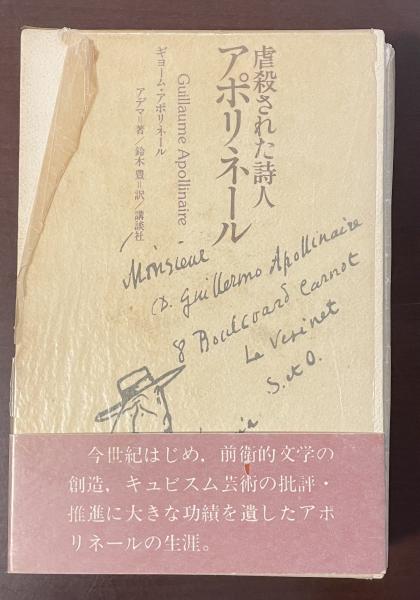 虐殺された詩人
アポリネール
Guillaume Apollinaire
ギヨーム・アポリネール
アデマ＝著／鈴木豊＝訳／講談社
Monsieur
D. Guillermo Apollinaire
8 Boulevard Carnot
Le Vesinet
S. et O.
今世紀はじめ，前衛的文学の
創造，キュビスム芸術の批評・
推進に大きな功績を遺したアポ
リネールの生涯。